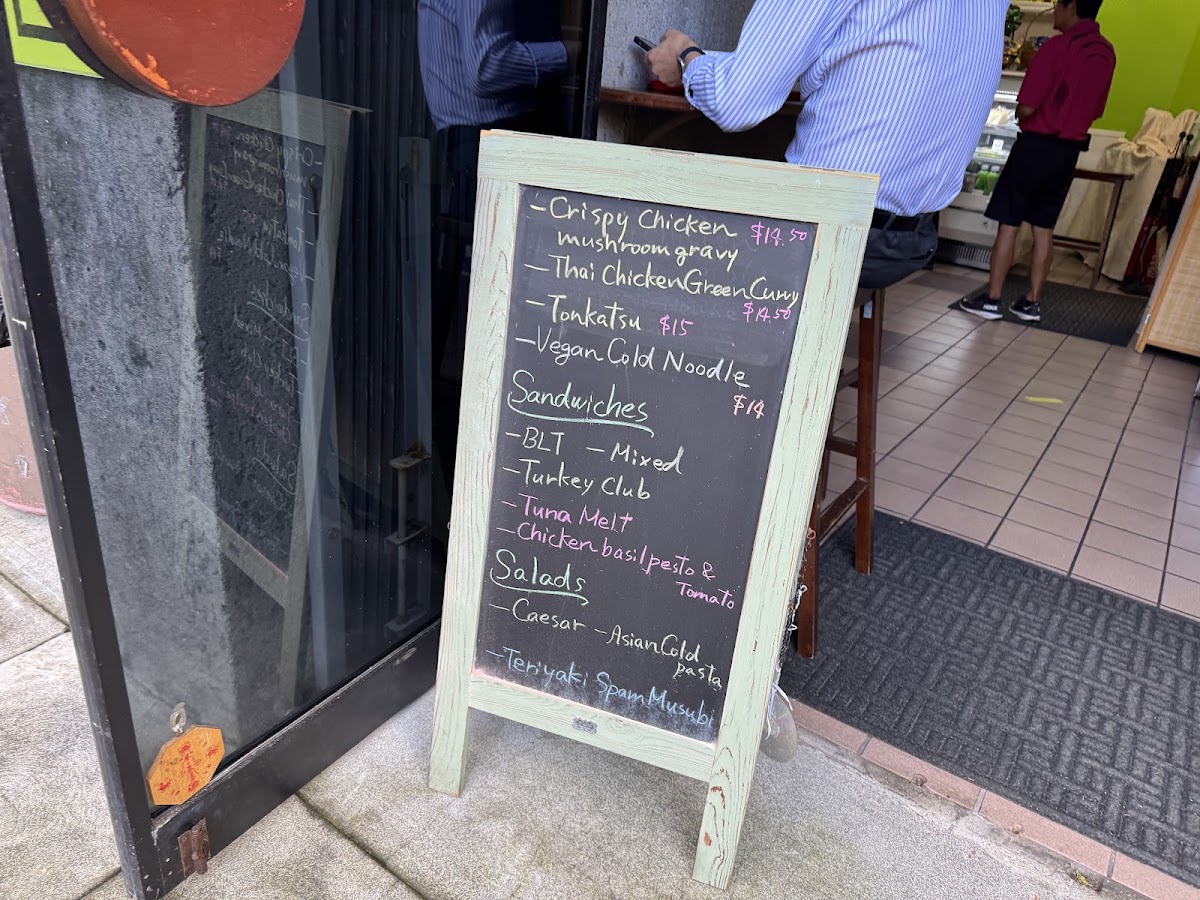 -Crispy Chicken $14.50
mushroom gravy
-Thai Chicken Green Curry
$14.50
-Tonkatsu $15
-Vegan Cold Noodle
$14
Sandwiches
-BLT -Mixed
-Turkey Club
-Tuna Melt
-Chicken basil pesto &
Tomato
Salads
-Caesar -Asian Cold
pasta
-Teriyaki Spam Musubi